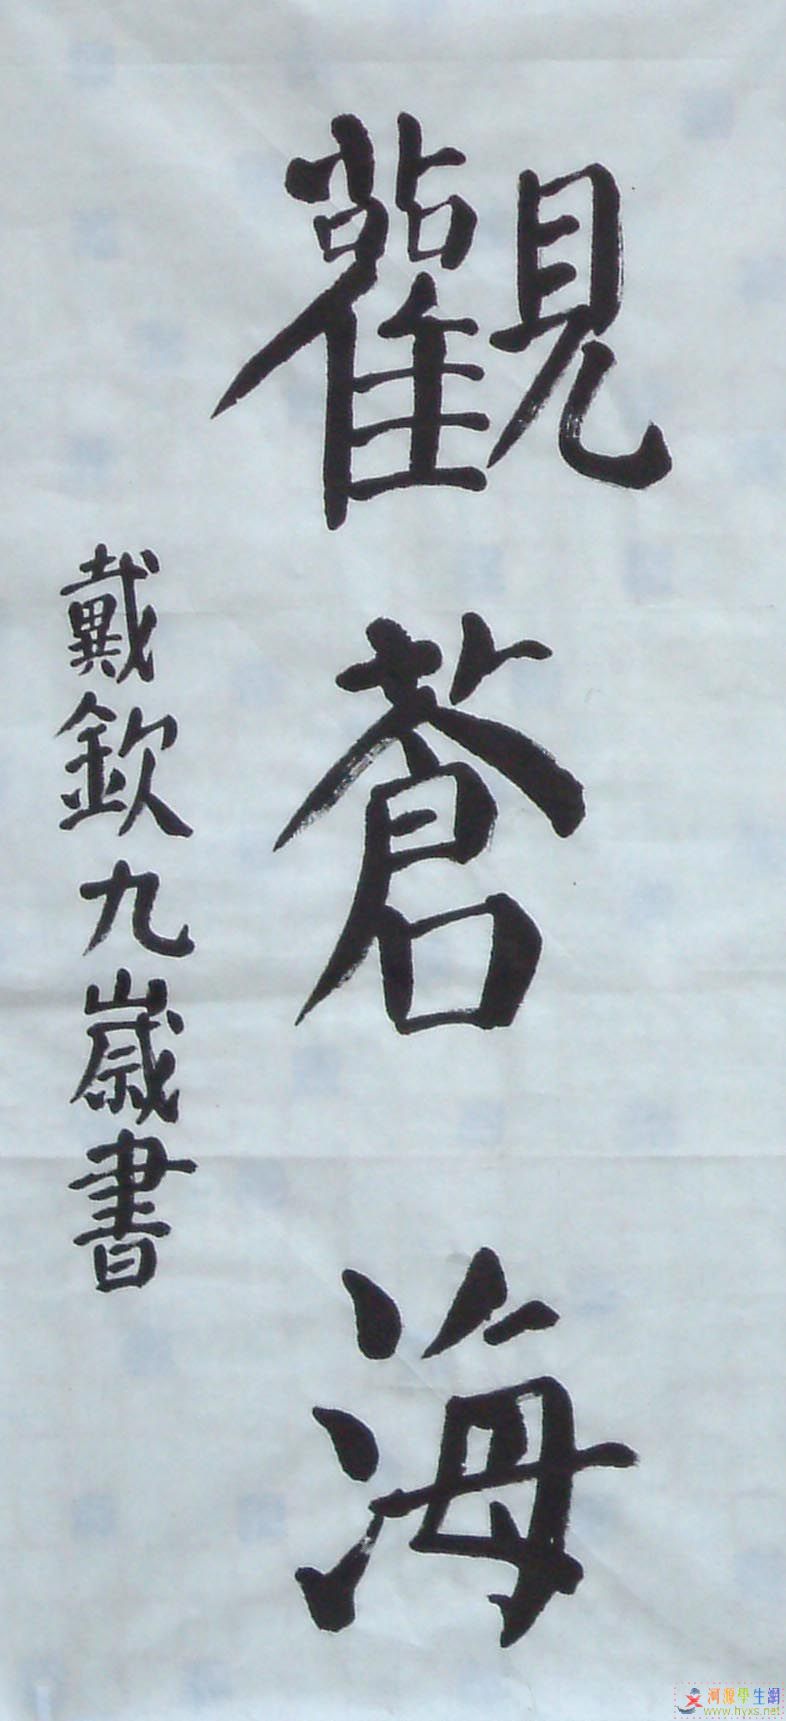 觀蒼海
戴欽九歲書
河源學生網
www.hyxs.net